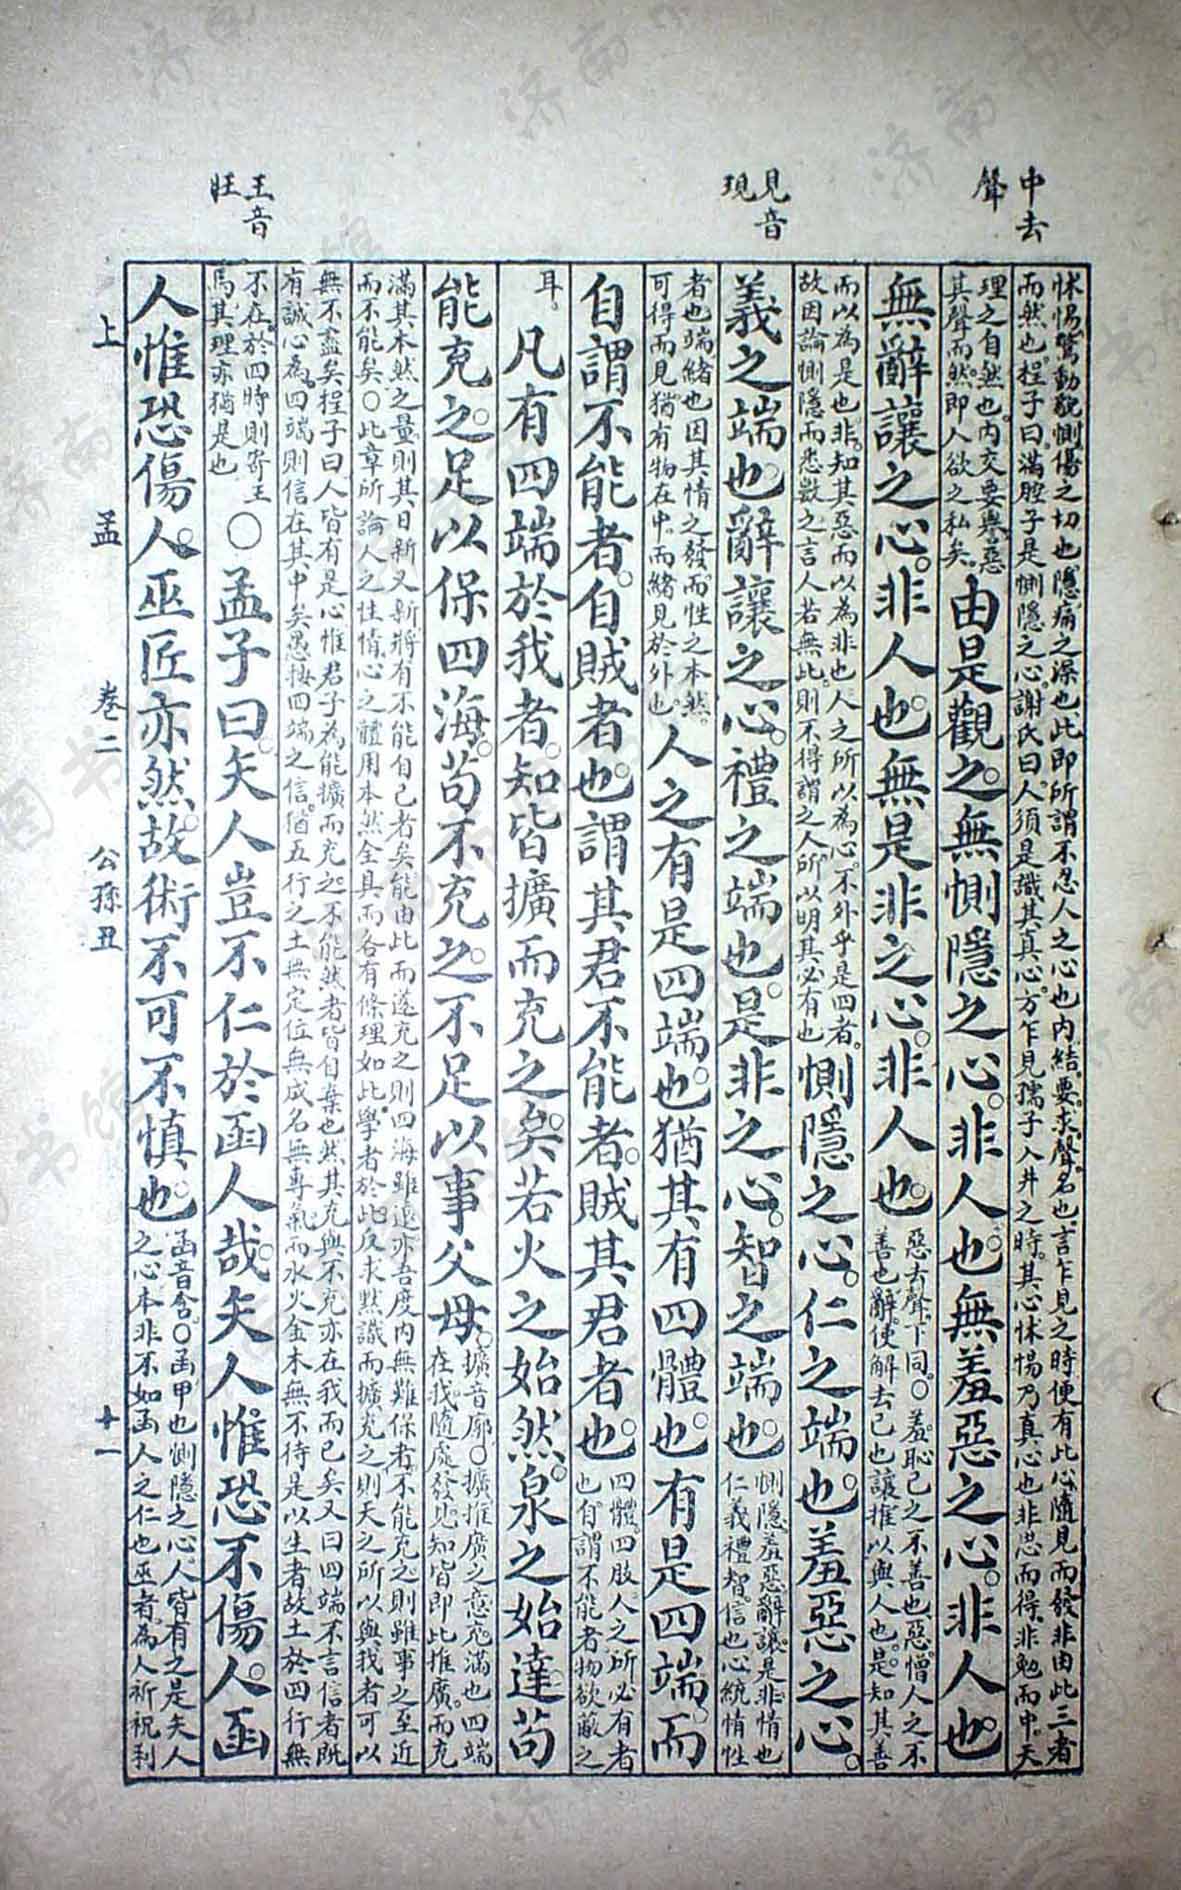 中去聲
見音現
王音旺
怵惕驚動貌惻傷之切也隱痛之深也此即所謂不忍人之心也內結要求聲名也言乍見之時便有此心隨見而發非由此三者
而然也程子曰滿腔子是惻隱之心謝氏曰人須是識其真心方乍見孺子入井之時其心怵惕乃真心也非思而得非勉而中天
理之自然也內交要譽惡
其聲而然即人欲之私矣
由是觀之無惻隱之心非人也無羞惡之心非人也
無辭讓之心非人也無是非之心非人也
惡去聲下同○羞恥己之不善也惡憎人之不
善也辭使解去己也讓推以與人也是知其善
而以為是也非知其惡而以為非也人之所以為心不外乎是四者
故因論惻隱而悉數之言人若無此則不得謂之人所以明其必有也
惻隱之心仁之端也羞惡之心
義之端也辭讓之心禮之端也是非之心智之端也
惻隱羞惡辭讓是非情也
仁義禮智信也心統情性
者也端緒也因其情之發而性之本然
可得而見猶有物在中而緒見於外也
人之有是四端也猶其有四體也有是四端而
自謂不能者自賊者也謂其君不能者賊其君者也
四體四肢人之所必有者
也自謂不能者物欲蔽之
耳
凡有四端於我者知皆擴而充之矣若火之始然泉之始達苟
能充之足以保四海苟不充之不足以事父母
擴音廓○擴推廣之意充滿也四端
在我隨處發見知皆即此推廣而充
滿其本然之量則其日新又新將有不能自已者矣能由此而遂充之則四海雖遠亦吾度內無難保者不能充之則雖事之至近
而不能矣○此章所論人之性情心之體用本然全具而各有條理如此學者於此反求默識而擴充之則天之所以與我者可以
無不盡矣程子曰人皆有是心惟君子為能擴而充之不能然者皆自棄也然其充與不充亦在我而已矣又曰四端不言信者既
有誠心為四端則信在其中矣愚按四端之信猶五行之土無定位無成名無專氣而水火金木無不待是以生者故土於四行無
不在於四時則寄王
焉其理亦猶是也
○孟子曰矢人豈不仁於函人哉矢人惟恐不傷人函
人惟恐傷人巫匠亦然故術不可不慎也
函音含○函甲也惻隱之心人皆有之是矢人
之心本非不如函人之仁也巫者為人祈祝利
上孟 卷二 公孫丑 十一